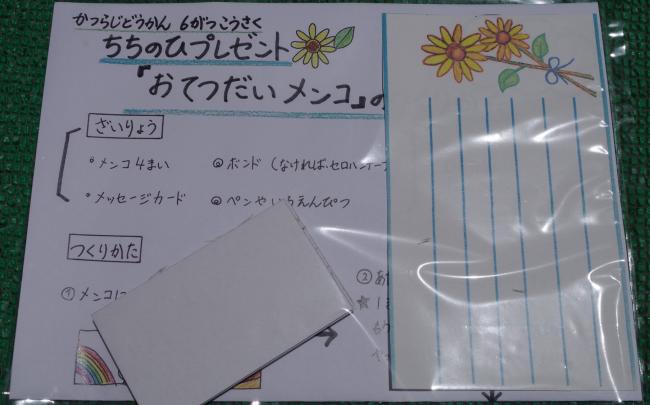 かつらじどうかん 6がつこうさく
ちちのひプレゼント
『おてつだいメンコ』の
ざいりょう
・メンコ4まい
◎ボンド (なければ、セロハンテープ
・メッセージカード
◎ペンやいろえんぴつ
つくりかた
①メンコに
②あ